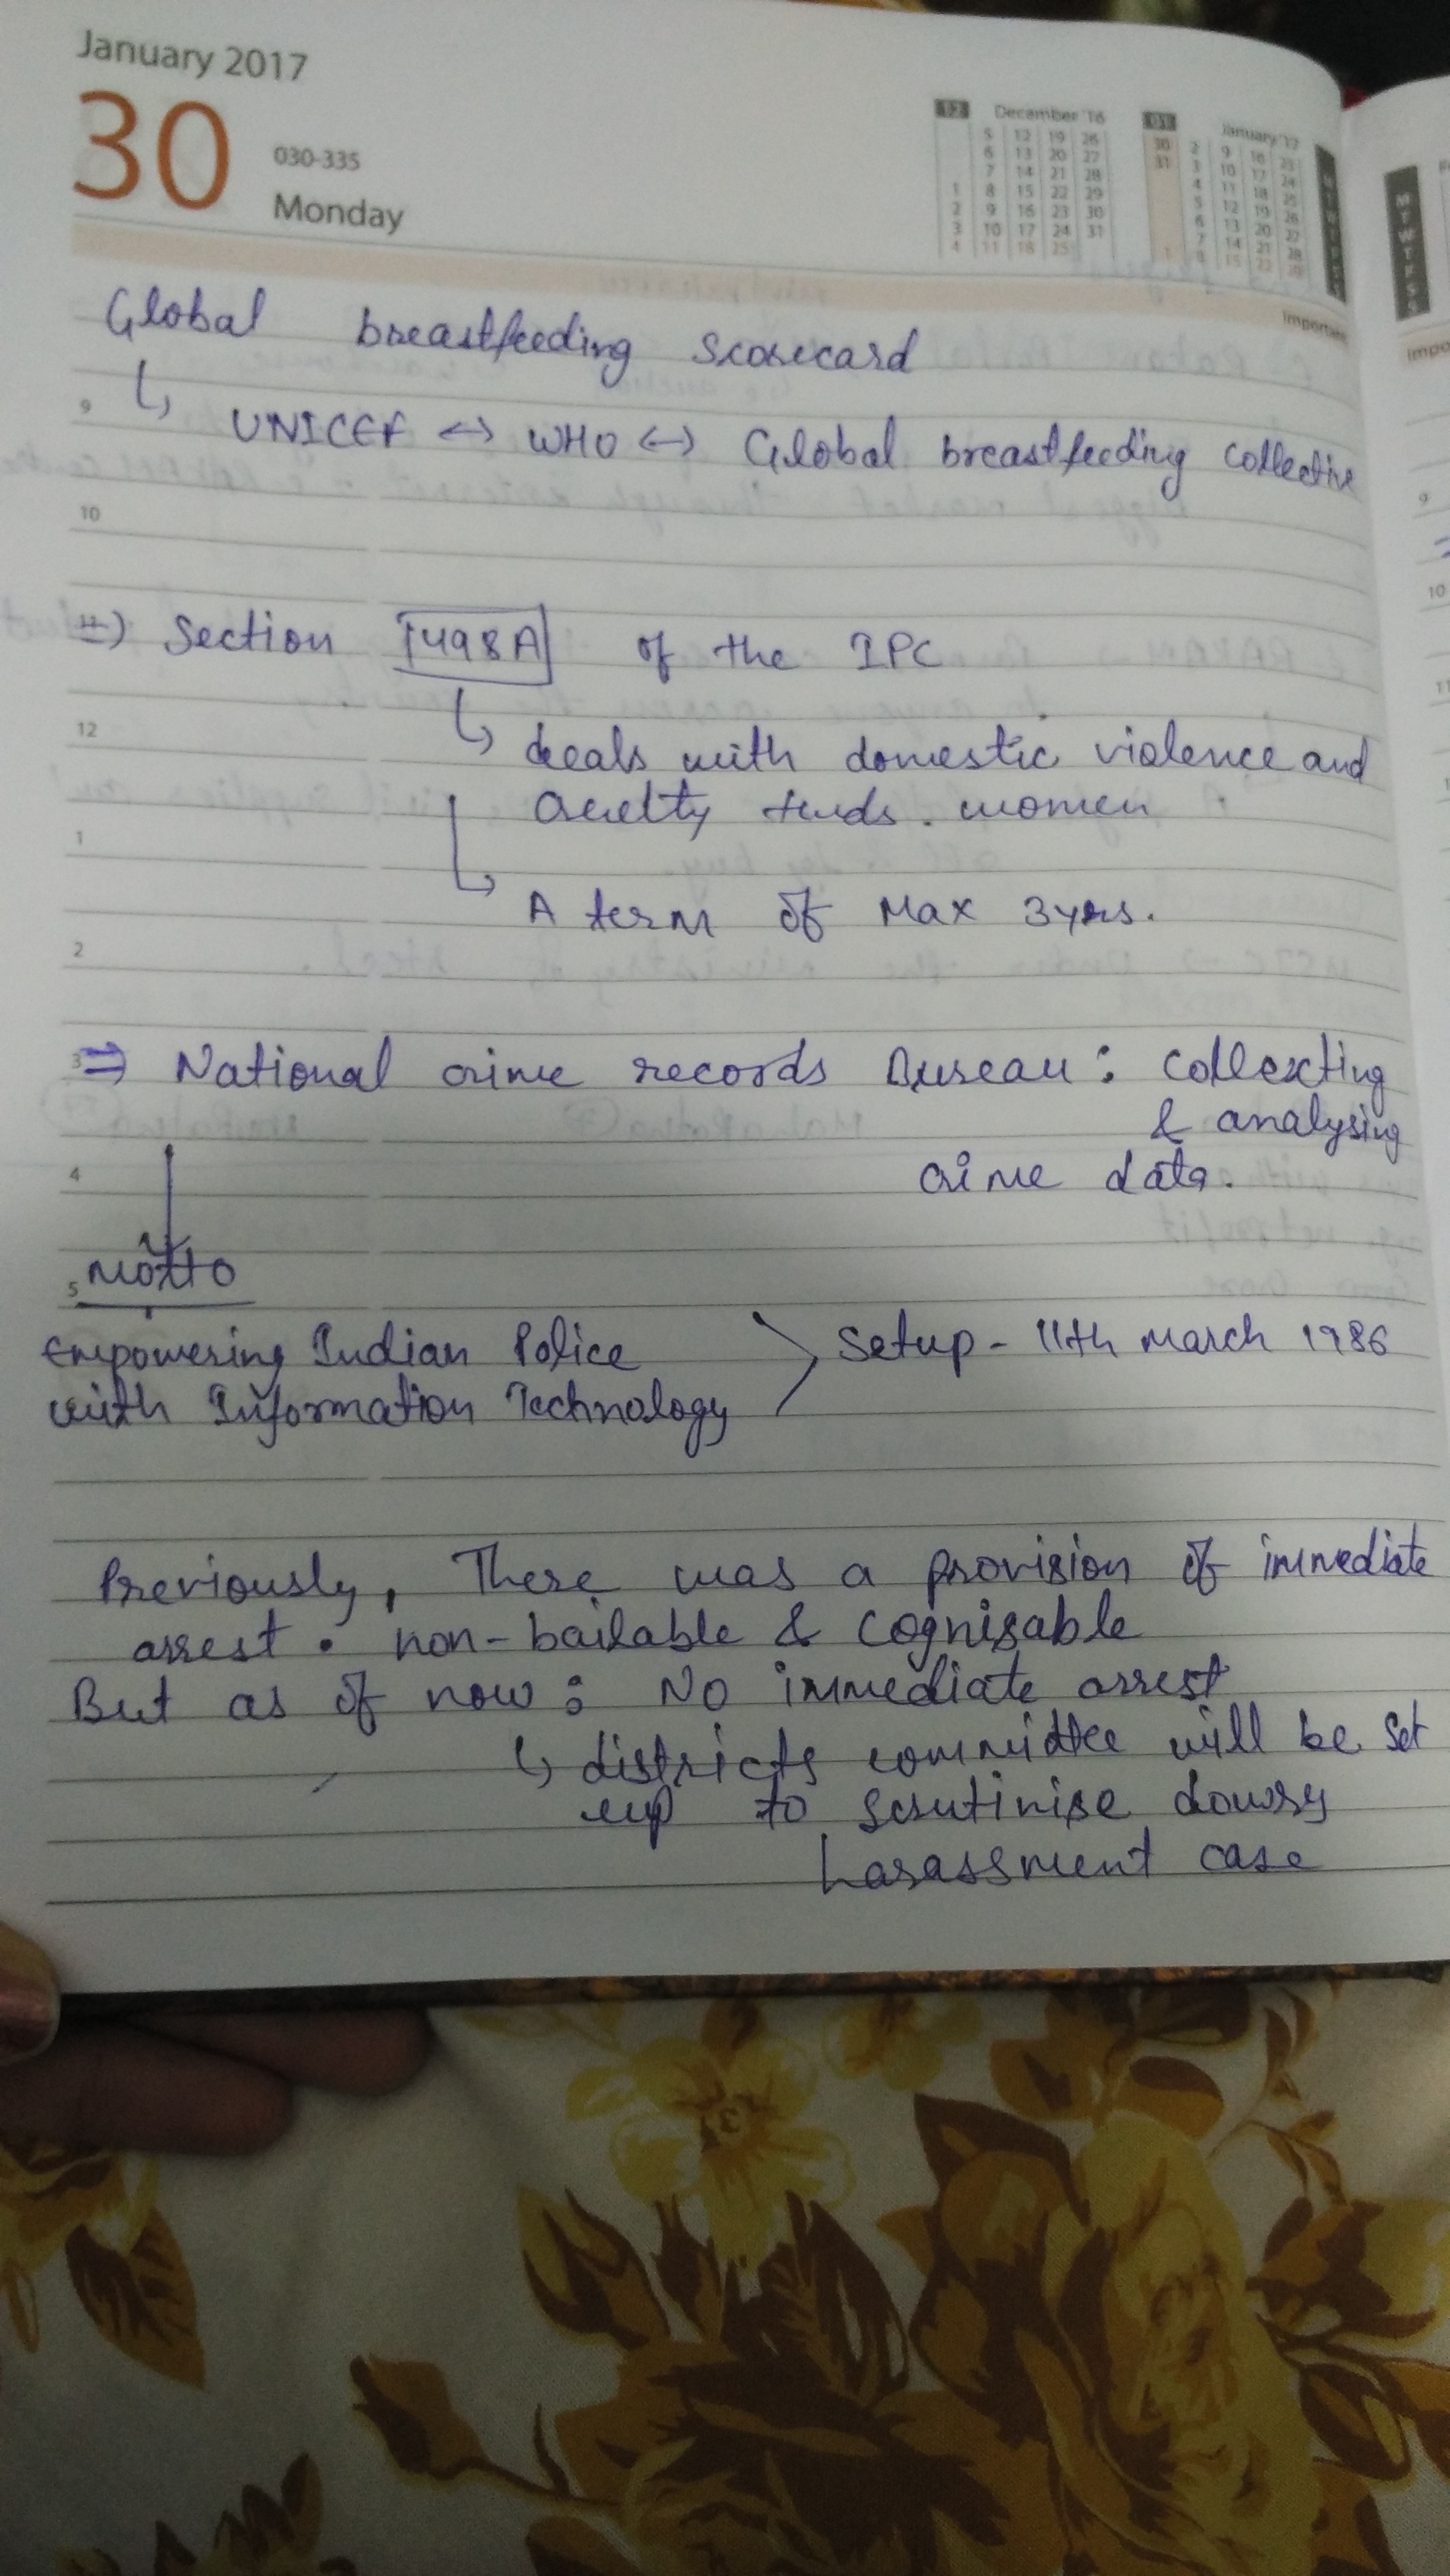 January 2017
30
030-335
Monday
12 December '16
5 12 19 26
6 13 20 27
7 14 21 28
1 8 15 22 29
2 9 16 23 30
3 10 17 24 31
4 11 18 25
01 January '17
30 2 9 16 23
31 3 10 17 24
4 11 18 25
5 12 19 26
6 13 20 27
7 14 21 28
1 8 15 22 29
M T W T F S S
Global breastfeeding scorecard
9
UNICEF ↔ WHO ↔ Global breastfeeding collective
10
⇒ Section 498A of the IPC
12
↳ deals with domestic violence and
cruelty twds. women
1
↳ A term of Max 3yrs.
2
3 ⇒ National crime records Bureau: collecting
& analysing
4
crime data.
5 Motto
Empowering Indian Police
with Information Technology
Setup - 11th March 1986
Previously, There was a provision of immediate
arrest. non-bailable & cognisable
But as of now: No immediate arrest
↳ districts committee will be set
up to scrutinise dowry
harassment case